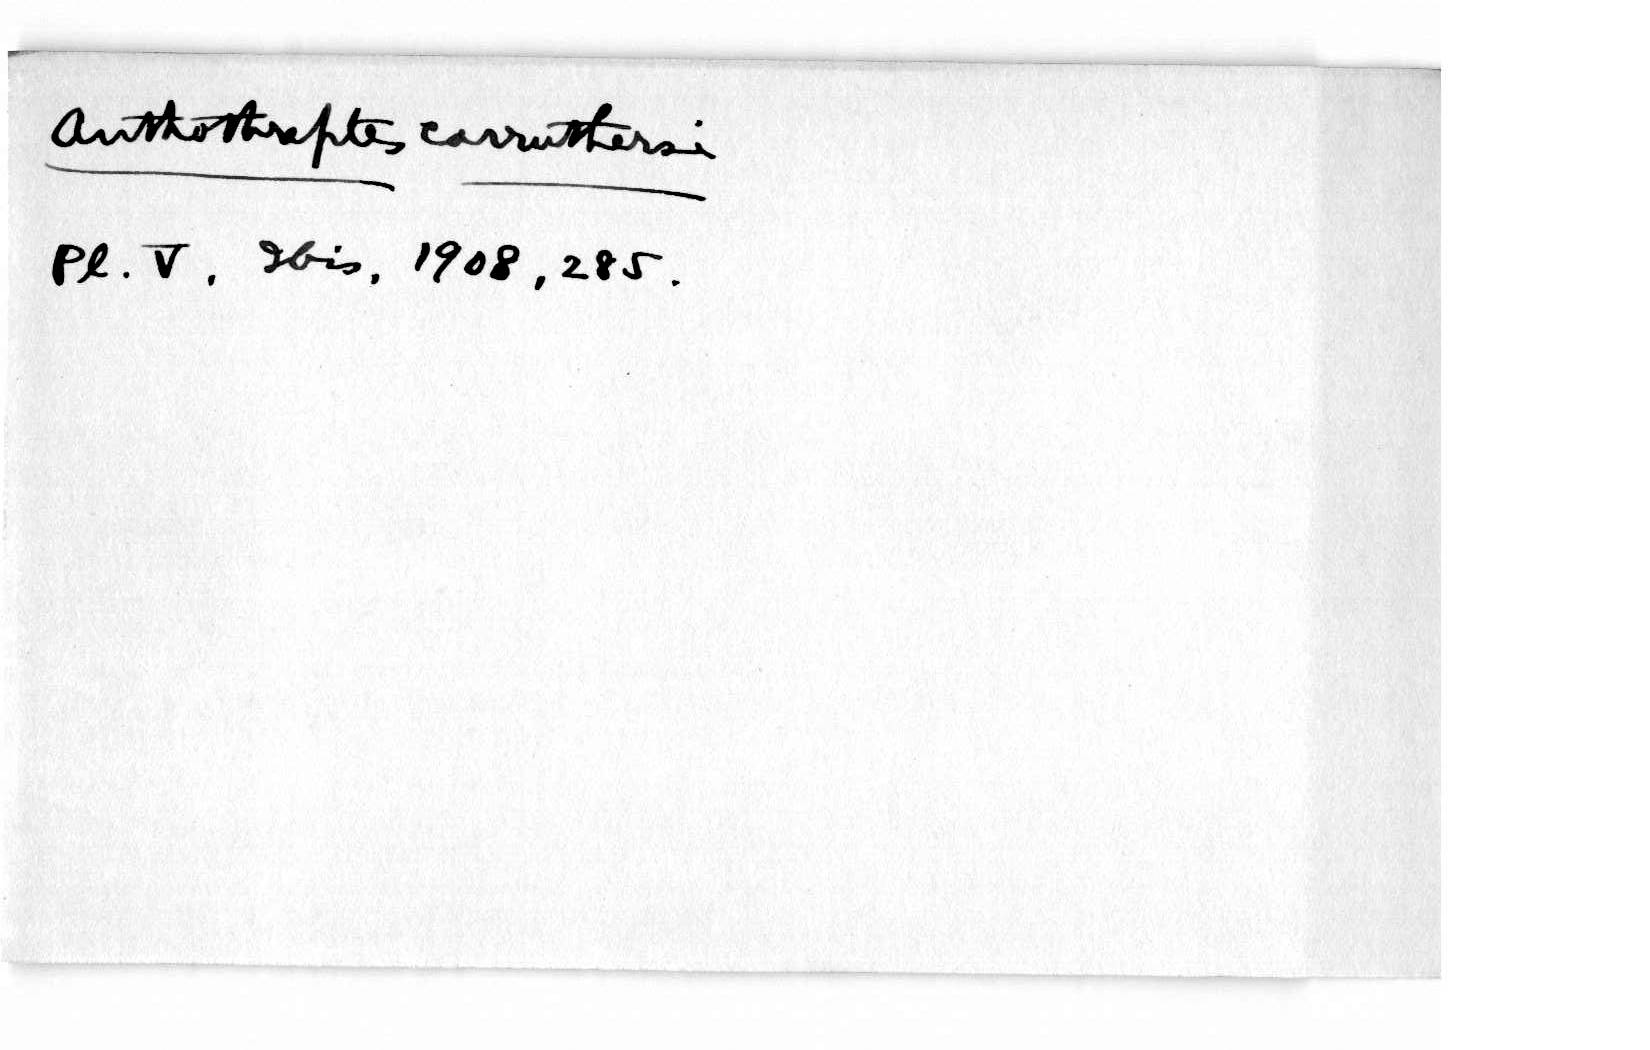 Anthothreptes carruthersi
Pl. V, Ibis, 1908, 285.